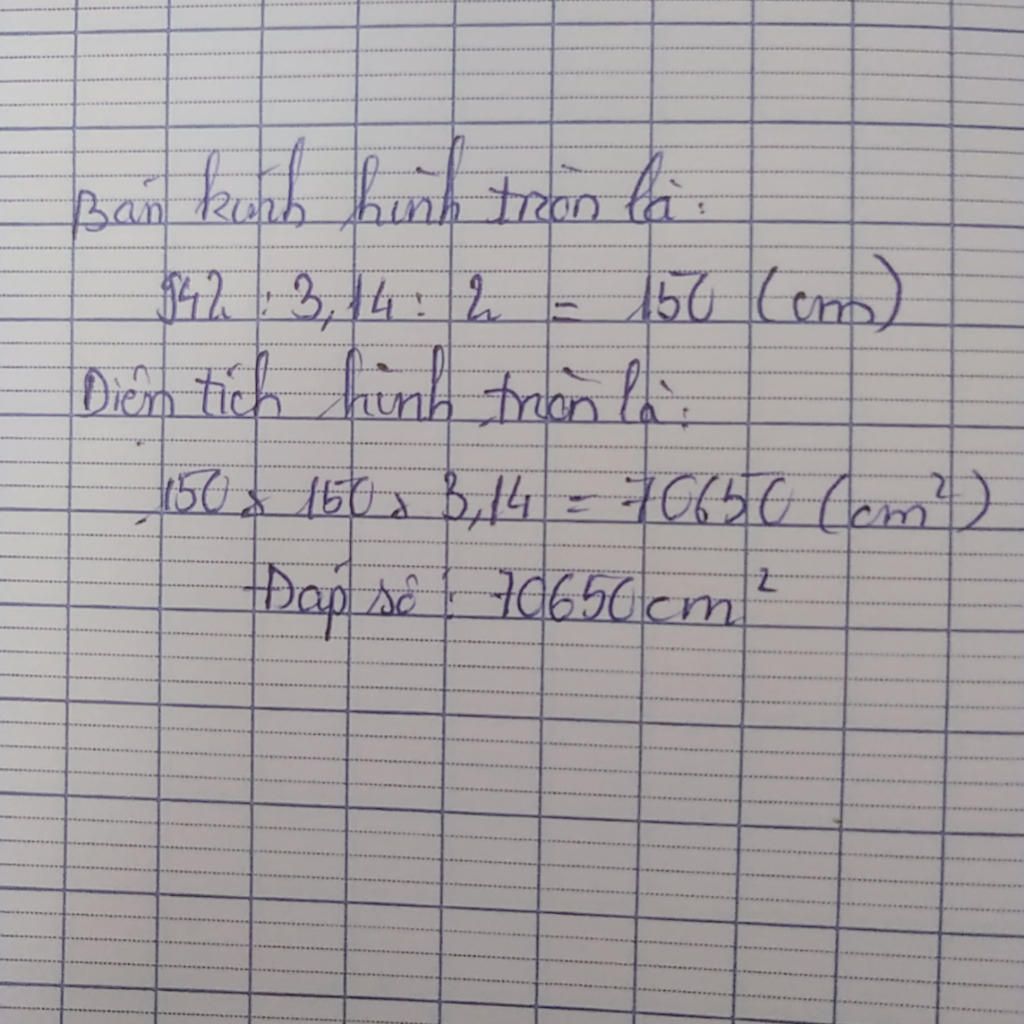 Bán kính hình tròn là:
942 : 3,14 : 2 = 150 (cm)
Diện tích hình tròn là:
150 x 150 x 3,14 = 70650 (cm²)
Đáp số : 70650 cm²